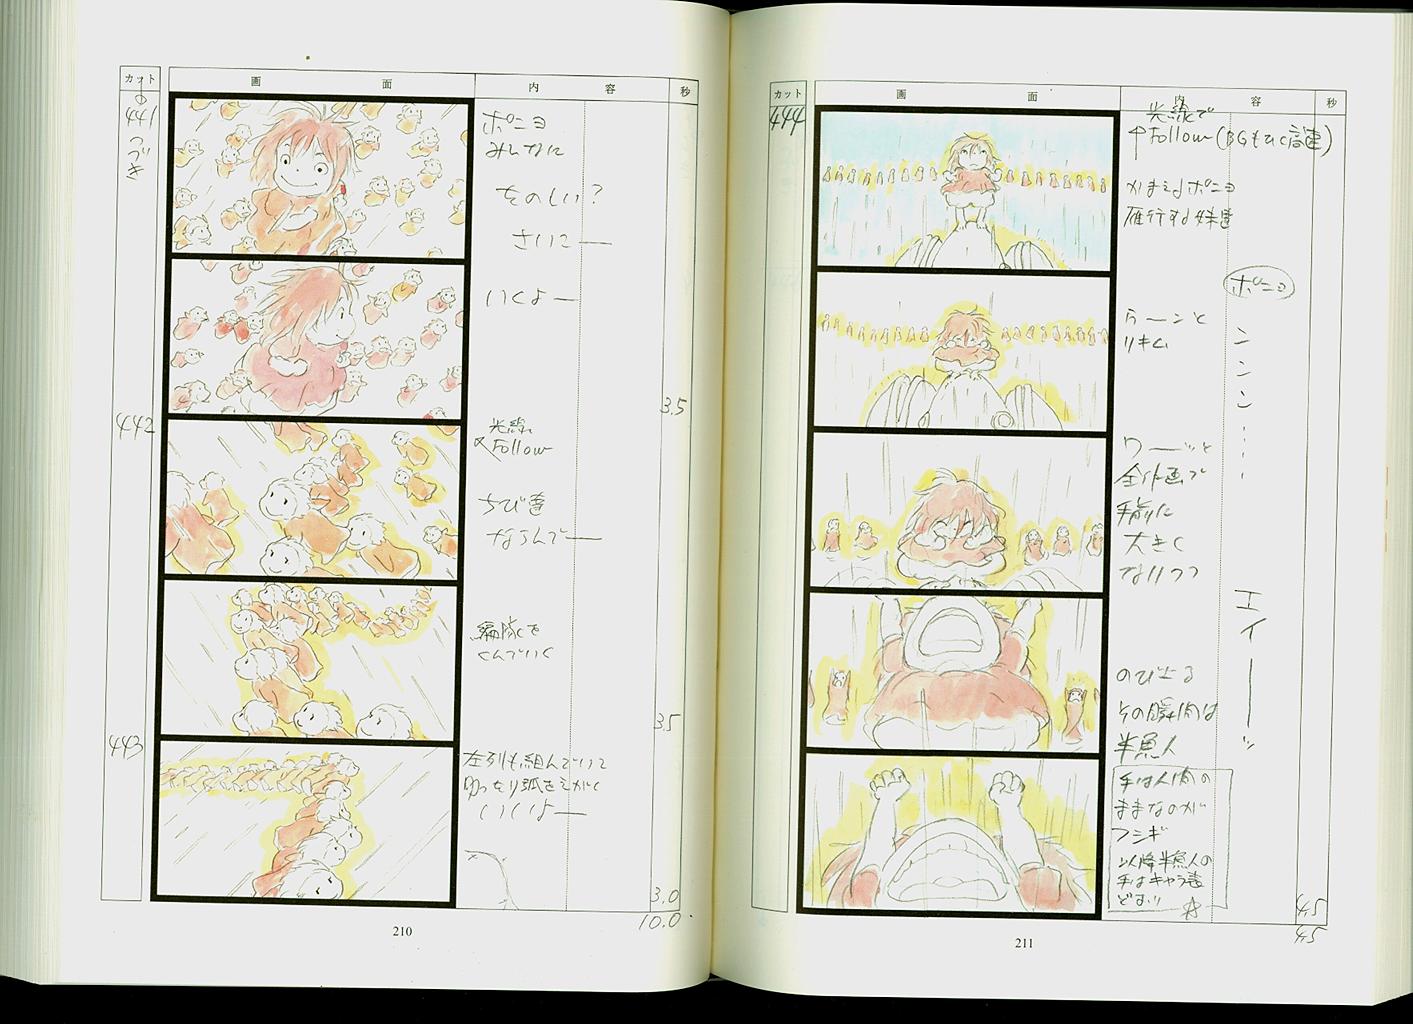 カット 画 面 内 容 秒
441
つづき
ポニョ
みんなに
たのしい?
さいこー
いくよー
3.5
442
光線
Follow
ちび達
ならんでー
編隊を
くんでいく
3.5
443
左列も組んでいて
ゆっくり弧をえがく
いくよー
3.0
10.0
210
カット 画 面 内 容 秒
444
光線で
Follow (BGもひく 高速)
かまえるポニョ
雁行する妹達
ポニョ
ンンン‥‥
リキム
ワーッと
全作画で
手前に
大きく
なりつつ
エイーッ
のび上る
その瞬間は
半魚人
手は人間の
ままなのが
フシギ
以降半魚人の
手はキャラ表
どおり
4.5
4.5
211